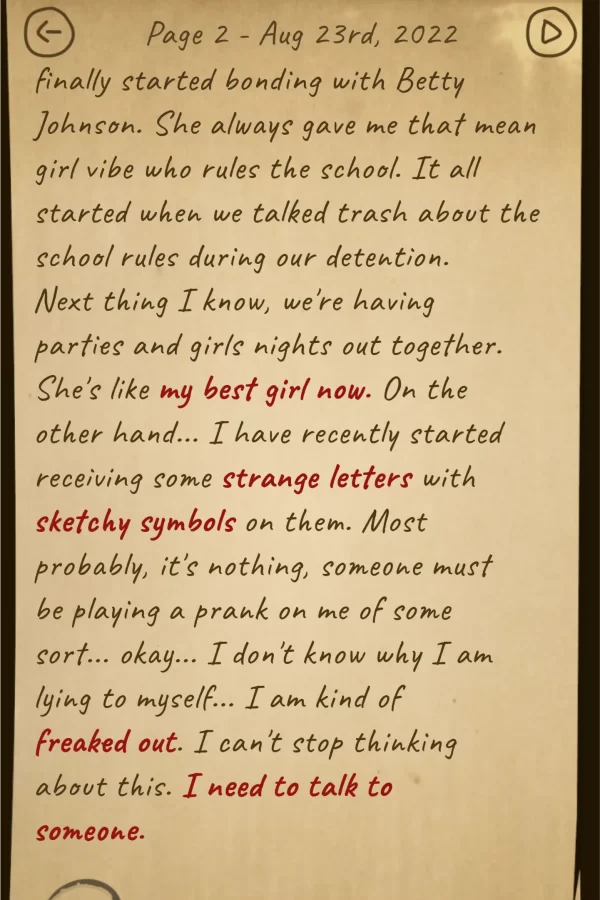 Page 2 - Aug 23rd, 2022
finally started bonding with Betty
Johnson. She always gave me that mean
girl vibe who rules the school. It all
started when we talked trash about the
school rules during our detention.
Next thing I know, we're having
parties and girls nights out together.
She's like my best girl now. On the
other hand... I have recently started
receiving some strange letters with
sketchy symbols on them. Most
probably, it's nothing, someone must
be playing a prank on me of some
sort... okay... I don't know why I am
lying to myself... I am kind of
freaked out. I can't stop thinking
about this. I need to talk to
someone.